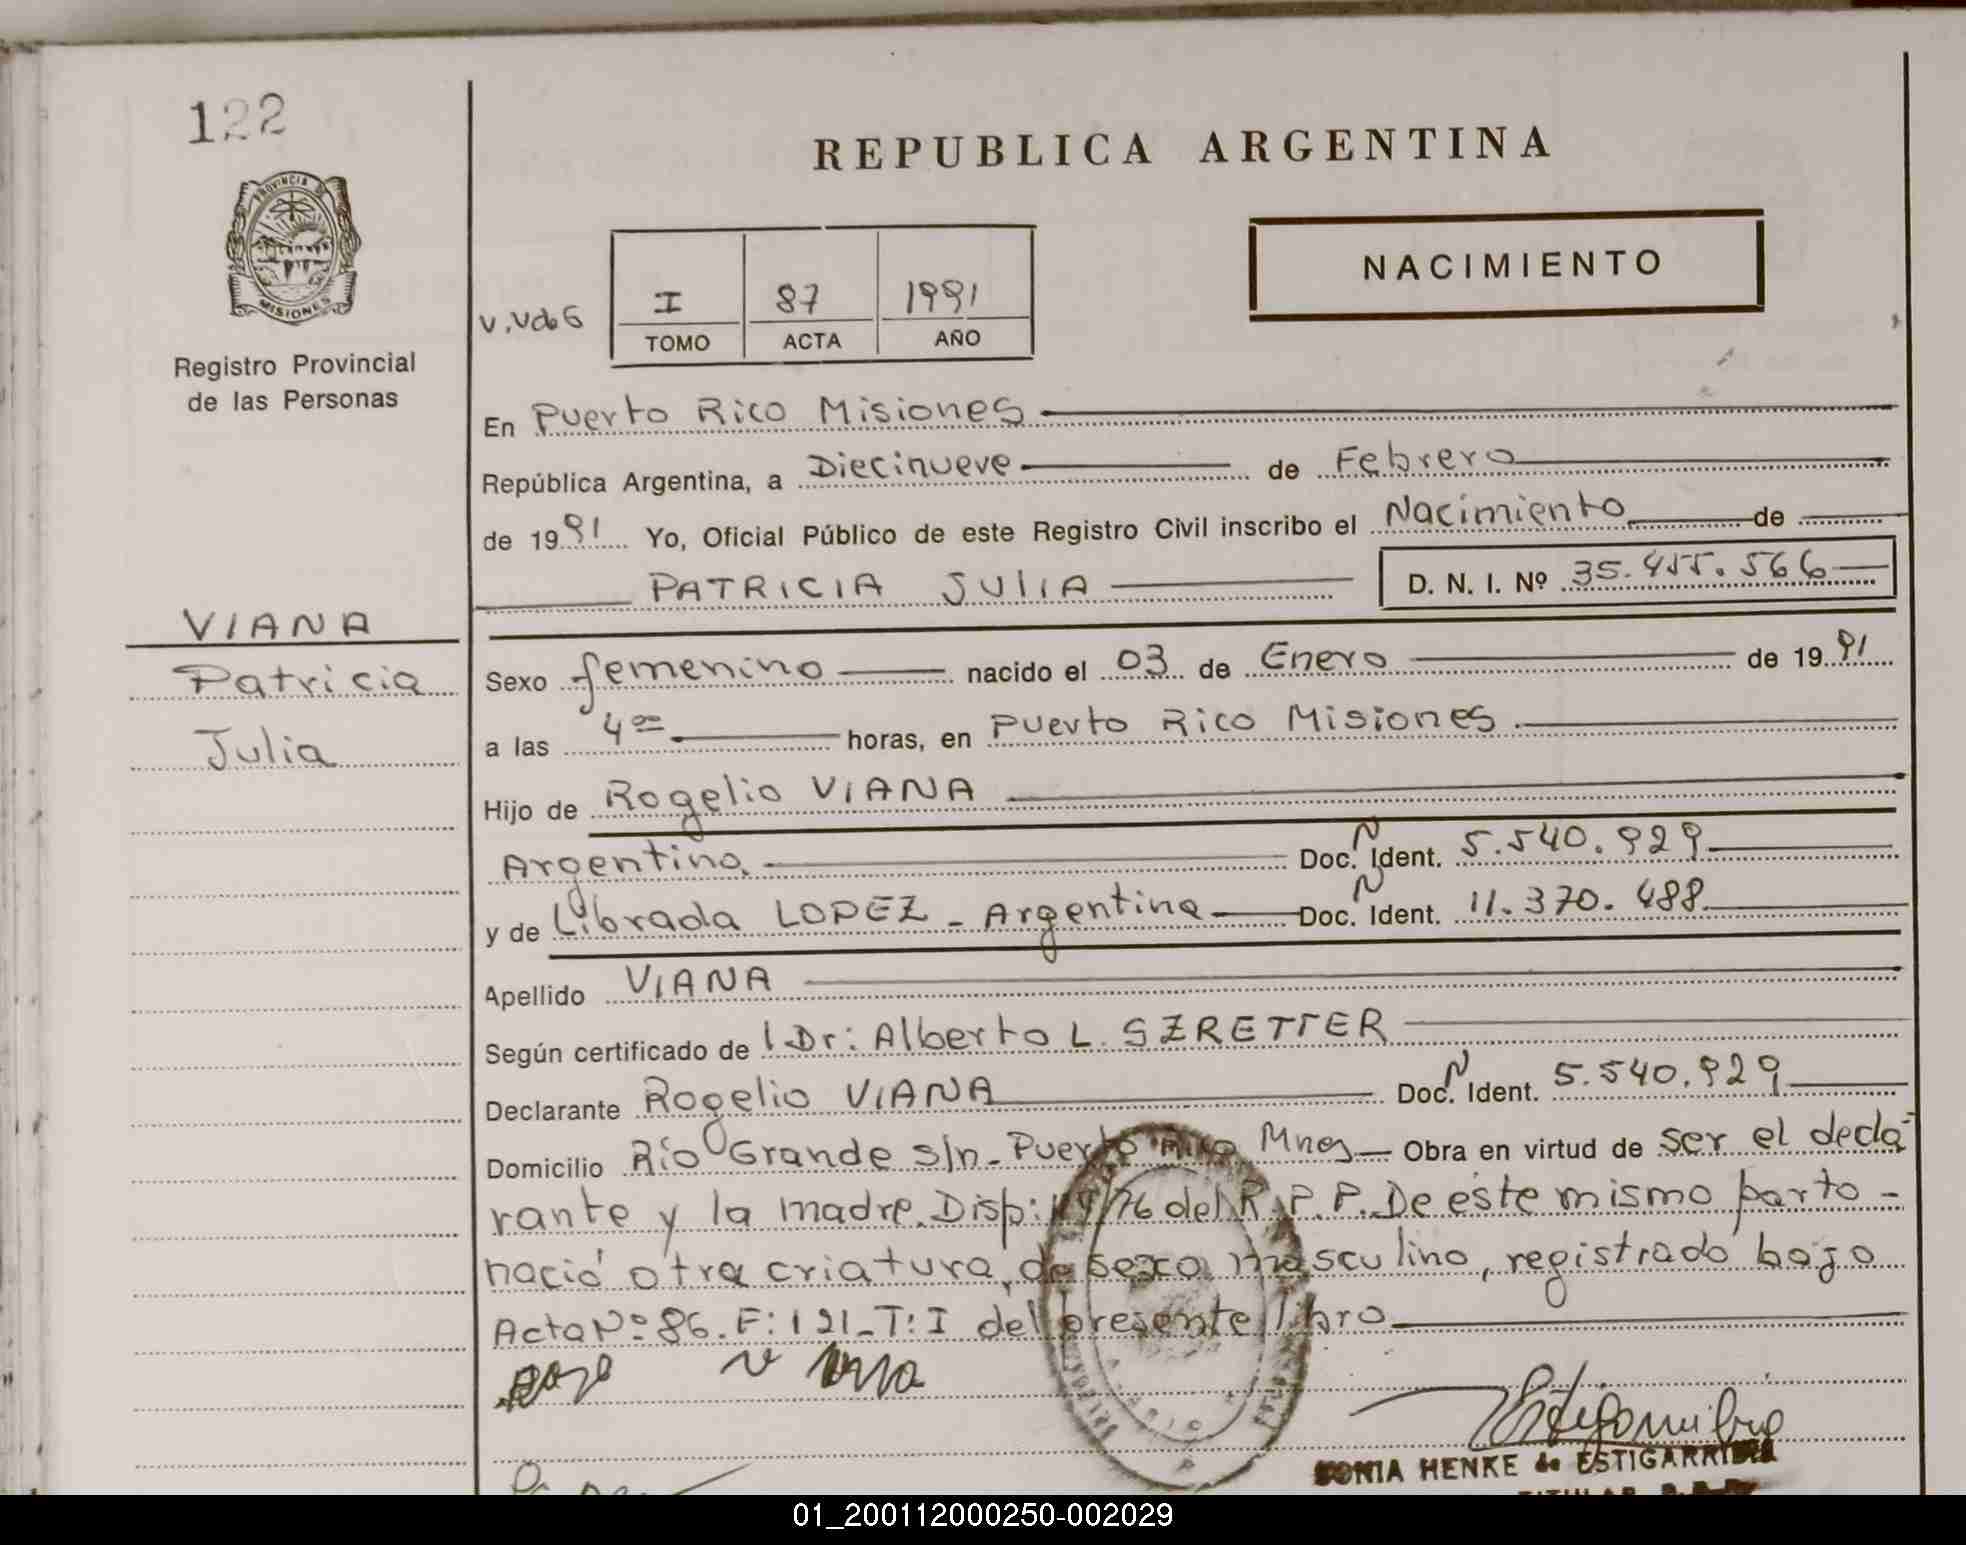 122
PROVINCIA DE
MISIONES
Registro Provincial
de las Personas
VIANA
Patricia
Julia
REPUBLICA ARGENTINA
NACIMIENTO
V.Vdo6
I 87 1991
TOMO ACTA AÑO
En Puerto Rico Misiones
República Argentina, a Diecinueve de Febrero
de 1991 Yo, Oficial Público de este Registro Civil inscribo el Nacimiento de
PATRICIA JULIA D. N. I. Nº 35.455.566
Sexo femenino nacido el 03 de Enero de 1991
a las 4 oo horas, en Puerto Rico Misiones
Hijo de Rogelio VIANA
Argentino Doc. N Ident. 5.540.929
y de Librada LOPEZ - Argentina Doc. N Ident. 11.370.488
Apellido VIANA
Según certificado de l Dr: Alberto L. SZRETTER
Declarante Rogelio VIANA Doc. N Ident. 5.540.929
Domicilio Río Grande s/n - Puerto Rico Mnes Obra en virtud de ser el decla-
rante y la madre. Disp: /76 del R.P.P. De este mismo parto -
nació otra criatura, de sexo masculino, registrado bajo
Acta Nº 86. F: 121 - T: I del presente libro
SONIA HENKE de ESTIGARRIBIA
TITULAR
01_200112000250-002029